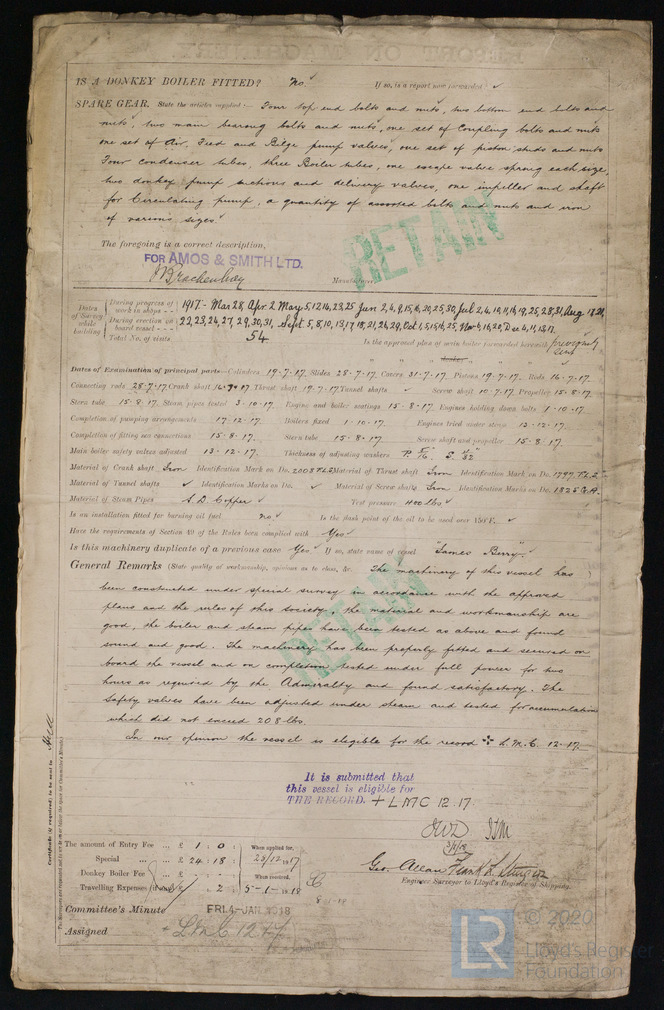 IS A DONKEY BOILER FITTED? No ✓ If so, is a report now forwarded? ✓
SPARE GEAR. State the articles supplied:— Four top end bolts and nuts, two bottom end bolts and
nuts, two main bearing bolts and nuts, one set of Coupling bolts and nuts
one set of Air, Feed and Bilge pump valves, one set of piston studs and nuts
Four condenser tubes, three Boiler tubes, one escape valve spring each size,
two donkey pump suctions and delivery valves, one impeller and shaft
for Circulating pump, a quantity of assorted bolts and nuts and iron
of various sizes.
RETAIN
The foregoing is a correct description,
FOR AMOS & SMITH LTD.
Manufacturer.
Dates of Survey while building
During progress of work in shops - - 1917:- Mar 28, Apr 2, May 5,12,14,23,25 Jun 2,4,9,15,16,20,25,30, Jul 2,4,10,11,16,19,25,28,31, Aug 17,21,
During erection on board vessel - - - 22,23,24,27,29,30,31, Sept 5,8,10,13,17,18,21,24,29, Oct 1,5,15,16,25, Nov 6,16,20, Dec 4,11,13,17.
Total No. of visits 54 Is the approved plan of main boiler forwarded herewith previously sent
" " " donkey " " "
Dates of Examination of principal parts—Cylinders 19.7.17 Slides 28.7.17 Covers 31.7.17 Pistons 19.7.17 Rods 16.7.17
Connecting rods 28.7.17 Crank shaft 16.7.17 Thrust shaft 19.7.17 Tunnel shafts ✓ Screw shaft 10.7.17 Propeller 15.8.17
Stern tube 15.8.17 Steam pipes tested 3.10.17 Engine and boiler seatings 15.8.17 Engines holding down bolts 1.10.17
Completion of pumping arrangements 17.12.17 Boilers fixed 1.10.17 Engines tried under steam 12.12.17
Completion of fitting sea connections 15.8.17 Stern tube 15.8.17 Screw shaft and propeller 15.8.17
Main boiler safety valves adjusted 13.12.17 Thickness of adjusting washers
Material of Crank shaft Iron Identification Mark on Do. 2008 F.L.S Material of Thrust shaft Iron Identification Mark on Do. 1797 F.L.S
Material of Tunnel shafts ✓ Identification Marks on Do. ✓ Material of Screw shafts Iron Identification Marks on Do. 1825 G.A.
Material of Steam Pipes S.D. Copper ✓ Test pressure 400 lbs ✓
Is an installation fitted for burning oil fuel no ✓ Is the flash point of the oil to be used over 150°F. ✓
Have the requirements of Section 49 of the Rules been complied with Yes
Is this machinery duplicate of a previous case Yes If so, state name of vessel "James Berry"
General Remarks (State quality of workmanship, opinions as to class, &c. The machinery of this vessel has
been constructed under special survey in accordance with the approved
plans and the rules of this society, the material and workmanship are
good, the boiler and steam pipes have been tested as above and found
sound and good. The machinery has been properly fitted and secured on
board the vessel and on completion tested under full power for two
hours as required by the Admiralty and found satisfactory. The
safety valves have been adjusted under steam and tested for accumulation
which did not exceed 208 lbs.
In our opinion the vessel is eligible for the record + L.M.C. 12.17
RETAIN
It is submitted that
this vessel is eligible for
THE RECORD. + LMC 12.17.
The amount of Entry Fee ... £ 1 : 0 : When applied for,
Special ... £ 24 : 18 : 28/12/1917
Donkey Boiler Fee ... £ - : - : When received,
Travelling Expenses (if any) £ : 2 : 5-1-1918
Geo. Allan Frank L. Sturgeon
Engineer Surveyor to Lloyd's Register of Shipping.
Committee's Minute FRI. 4-JAN. 1918
Assigned + L.M.C. 12.17
Certificate (if required) to be sent to Hull
© 2020
LR
Lloyd's Register
Foundation